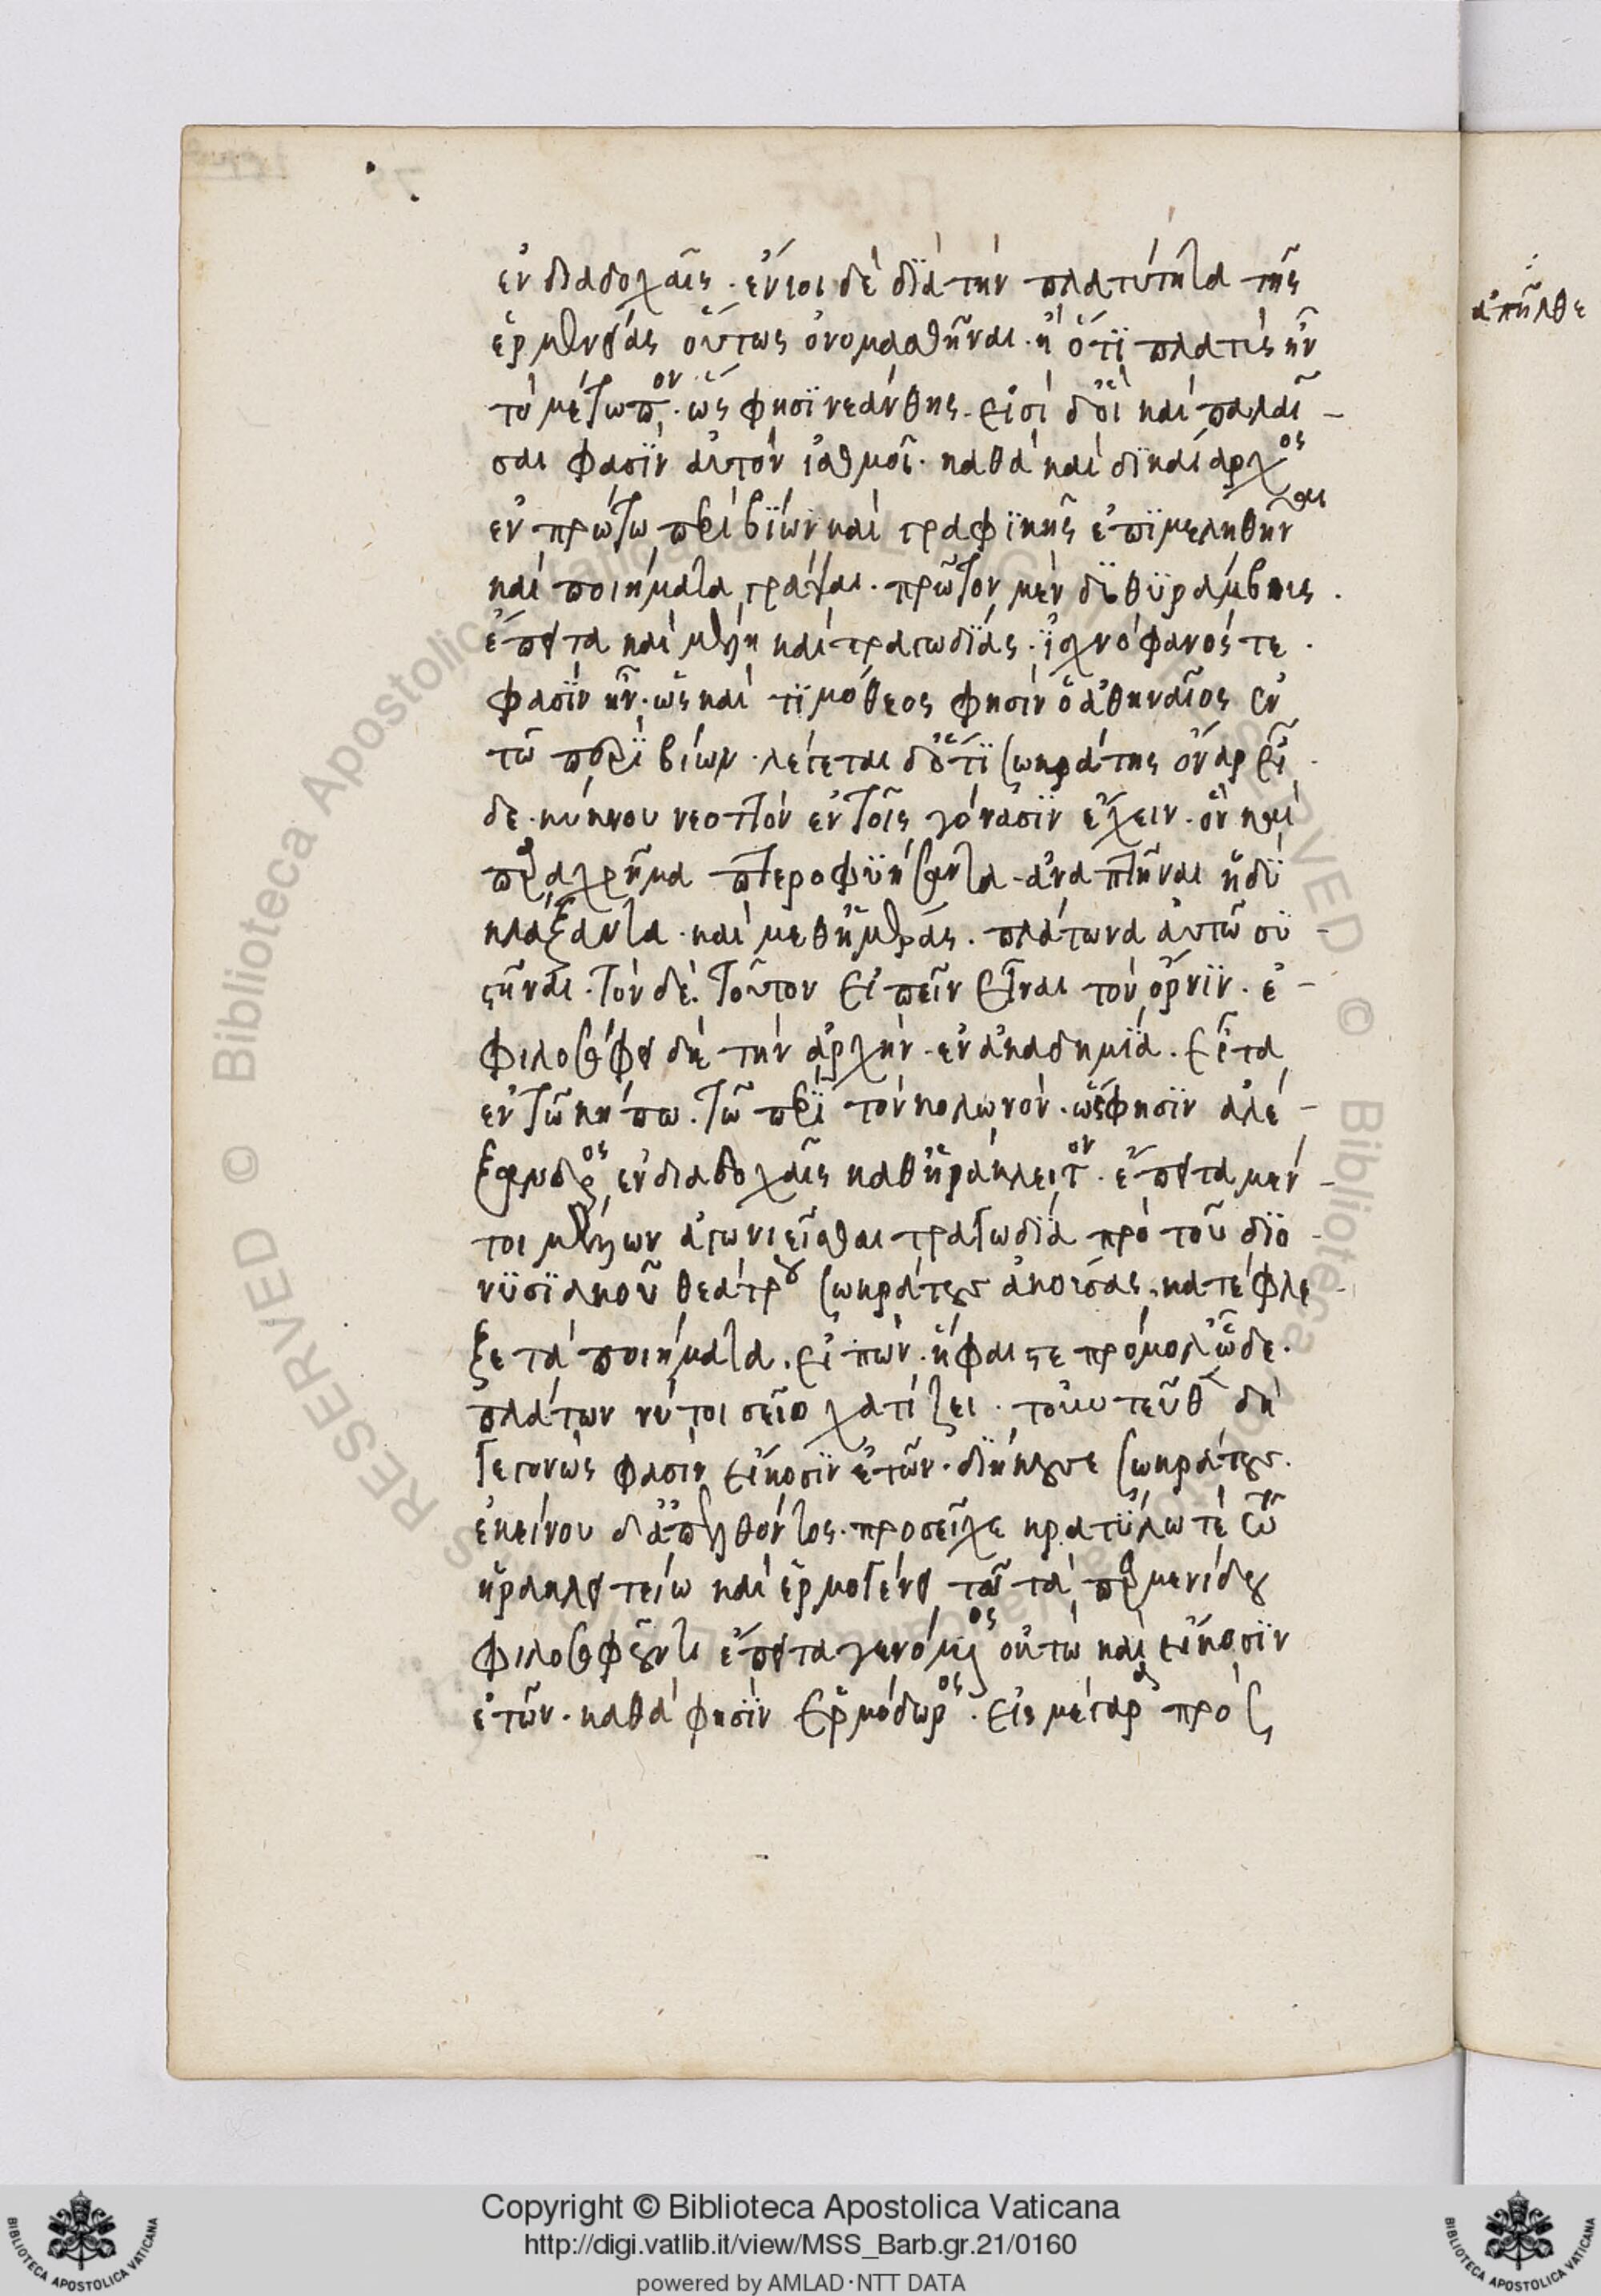 ἐν διαδοχαῖς. ἔνιοι δὲ διὰ τὴν πλατύτητα τῆς
ἑρμηνείας οὕτως ὀνομασθῆναι. ἢ ὅτι πλατὺς ἦν
τὸ μέτωπον. ὥς φησι νεάνθης. εἰσὶ δ' οἳ καὶ παλαῖ-
σαι φασὶν αὐτὸν ἰσθμοῖ. καθὰ καὶ δικαίαρχος
ἐν πρώτω περὶ βίων καὶ γραφικῆς ἐπιμεληθῆναι
καὶ ποιήματα γράψαι. πρῶτον μὲν διθυράμβους.
ἔπειτα καὶ μέλη καὶ τραγωδίας. ἰσχνόφωνός τε.
φασὶν ἦν. ὡς καὶ τιμόθεος φησὶν ὁ ἀθηναῖος ἐν
τῶ περὶ βίων. λέγεται δ' ὅτι σωκράτης ὄναρ εἶ
δε. κύκνου νεοττὸν ἐν τοῖς γόνασιν ἔχειν. ὃν καὶ
παραχρῆμα πτεροφυήσαντα ἀναπτῆναι ἡδὺ
κλάξαντα. καὶ μεθ' ἡμέρας. πλάτωνα αὐτῶ συ-
στῆναι. τὸν δὲ. τοῦτον εἰπεῖν εἶναι τὸν ὄρνιν. ἐ-
φιλοσόφει δὴ τὴν ἀρχὴν ἐν ἀκαδημία. εἶτα
ἐν τῶ κήπω. τῶ περὶ τὸν κολωνὸν. ὥς φησὶν ἀλέ-
ξανδρος ἐν διαδοχαῖς καθ' ἡράκλειτον. ἔπειτα μέν-
τοι μέλλων ἀγωνιεῖσθαι τραγωδία πρὸ τοῦ διο-
νυσιακοῦ θεάτρου σωκράτους ἀκούσας. κατέφλε-
ξε τὰ ποιήματα. εἰπών. ἥφαιστε πρόμολ' ὧδε.
πλάτων νύ τοι σεῖο χατίζει. τοὐντεῦθεν δὴ
γεγονώς φασὶν εἴκοσιν ἐτῶν. διήκουσε σωκράτους.
ἐκείνου δ' ἀπελθόντος. προσεῖχε κρατύλω τε τῶ
ἡρακλειτείω καὶ ἑρμογένει τῶ τὰ παρμενίδου
φιλοσοφοῦντι ἔπειτα γενόμενος οὕτω καὶ εἴκοσιν
ἐτῶν. καθά φησιν ἑρμόδωρος. εἰς μέγαρα πρὸς
ἀπῆλθε
Copyright © Biblioteca Apostolica Vaticana
http://digi.vatlib.it/view/MSS_Barb.gr.21/0160
powered by AMLAD·NTT DATA